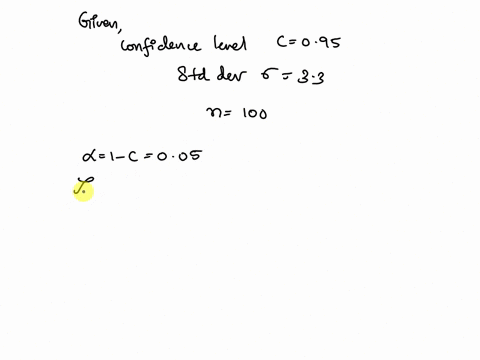 Given,
confidence level C = 0.95
Std dev σ = 3.3
n = 100
α = 1 - C = 0.05